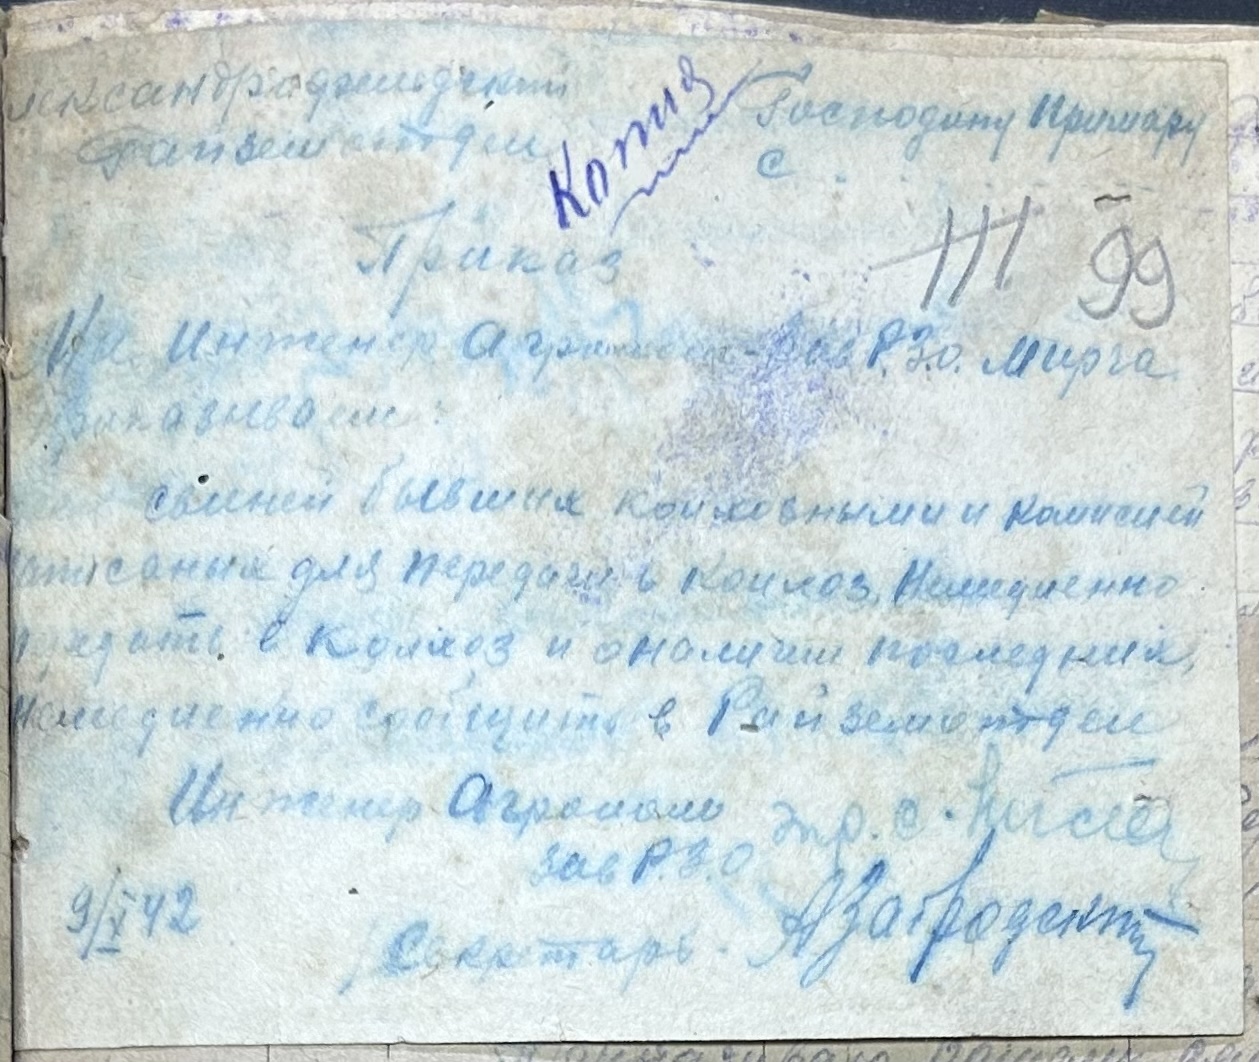 Александродженский
Райземотдел
Копия
Господину Примару
с.
Приказ
III 99
Инженер Агроном Зав Р.З.О. Мирга
приказываем:
свиней бывших колхозными и комисией
описаных для передачи в колхоз, Немедленно
в колхоз и о наличии последних,
немедленно сообщить в Райземотдел
Инженер Агроном
Зав Р.З.О.
9/X 42
Секретарь АЗабродский